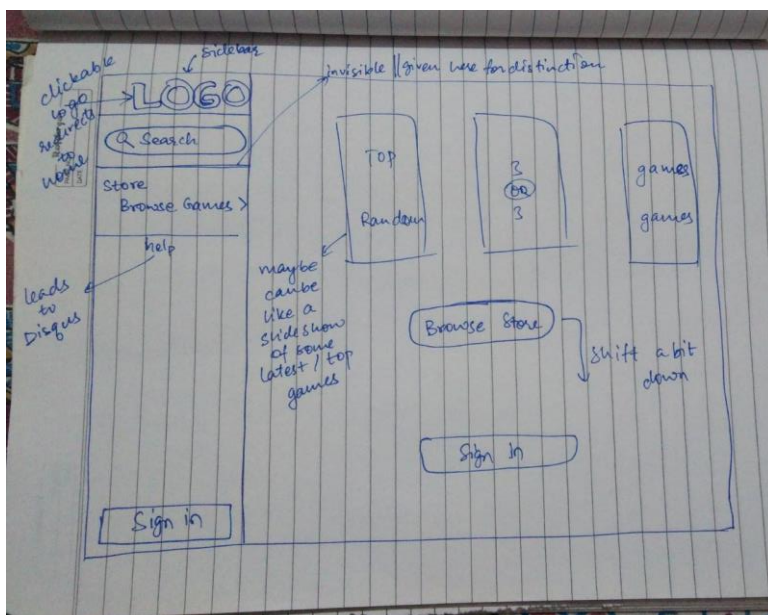 Sidebar
clickable
logo
redirects
to
home
LOGO
invisible || given here for distinction
Search
Store
Browse Games >
help
leads
to
Disqus
Sign in
TOP
3
games
OR
Random
3
games
maybe
can be
like a
slideshow
of some
latest / top
games
Browse Store
shift a bit
down
Sign In